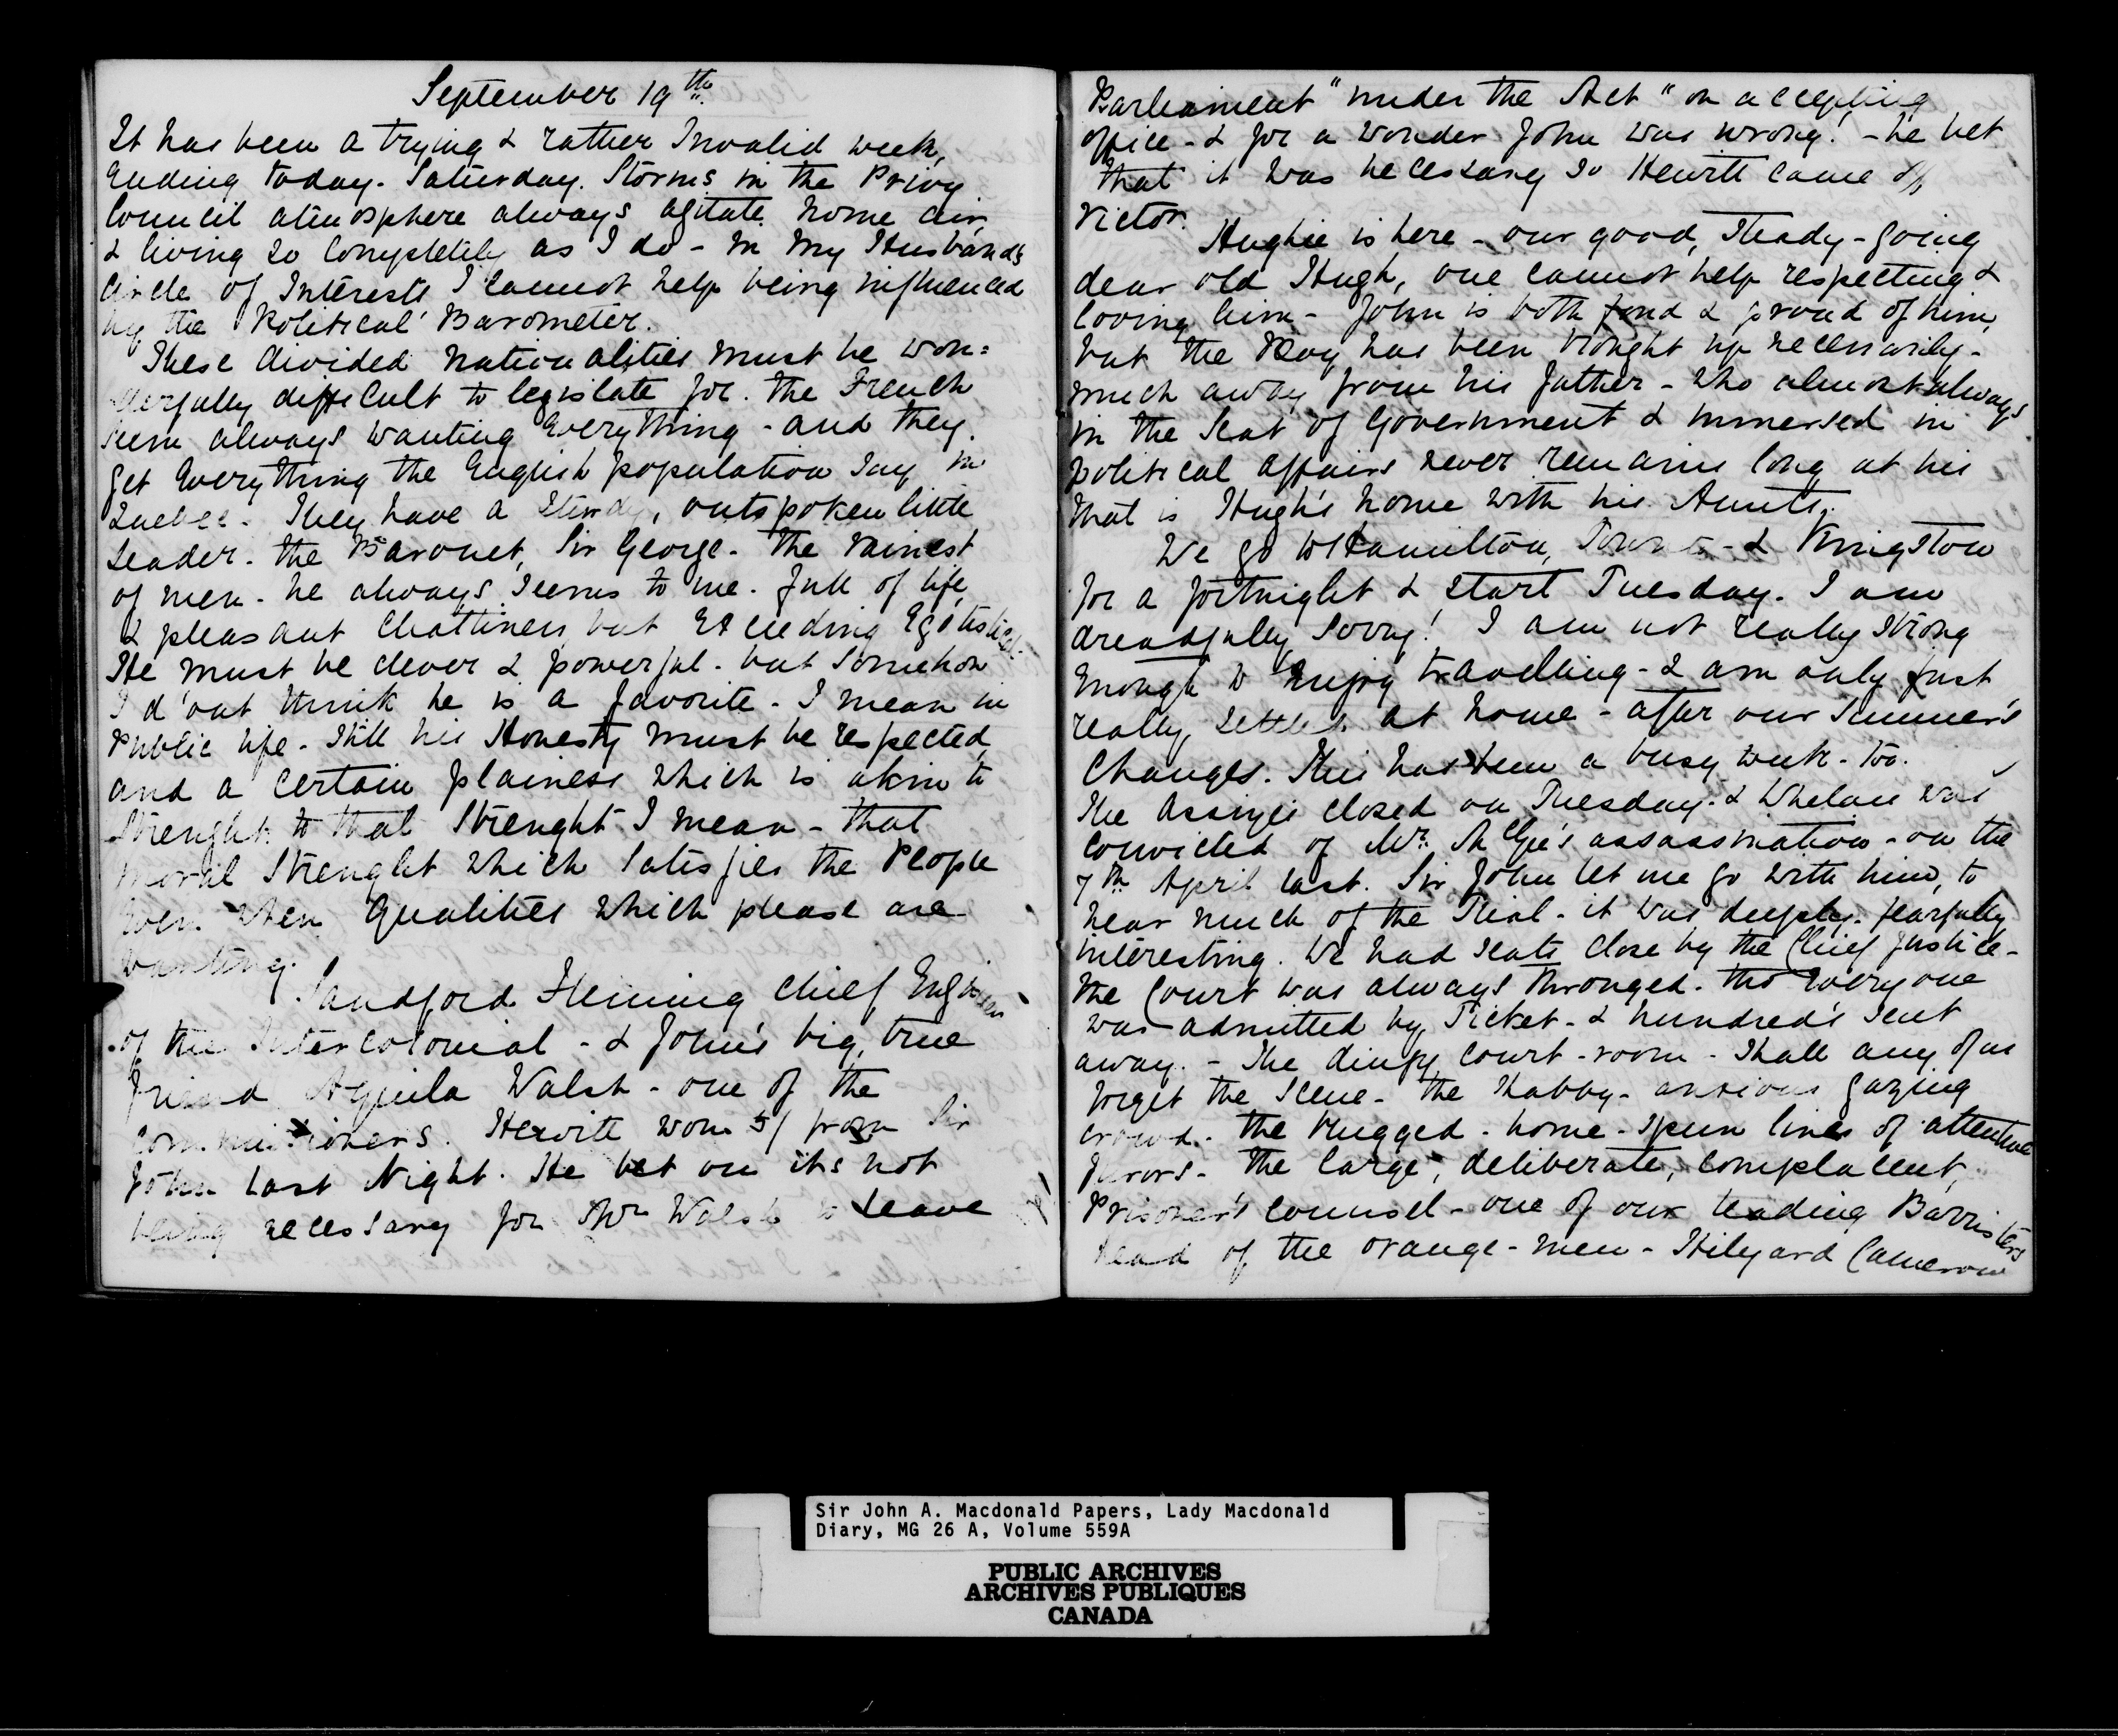 September 19th.
It has been a trying & rather Invalid week,
Ending today. Saturday. Storms in the Privy
Council atmosphere always agitate home air,
& living so completely as I do - in my Husbands
Circle of Interests I cannot help being influenced
by the Political Barometer.
These divided nationalities must be won=
derfully difficult to legislate for. The French
seem always wanting Everything - and they
get Everything the English population say in
Quebec. They have a sturdy, outspoken little
Leader. the Baronet, Sir George. The vainest
of men. he always seems to me. full of life,
& pleasant chattiness, but Exceeding Egotistical.
He must be clever & powerful. but somehow
I d'ont think he is a favorite. I mean in
Public life. Still his Honesty must be respected,
and a certain plainess which is akin to
Strenght. to that Strenght I mean - that
moral Strenght which satisfies the People
Even when Qualities which please are
wanting.
Sandford Fleming Chief Engineer
of the Intercolonial - & John's big, true
friend Aquila Walsh - one of the
Commissioners. Hewitt won 5/ from Sir
John last Night. He bet on its not
being necessary for Mr Walsh to Leave
Parliament "under the Act" on accepting
office - & for a wonder John was wrong! - he bet
that it was necessary so Hewitt came off
Victor.
Hughie is here - our good, Steady-going
dear old Hugh, one cannot help respecting &
loving him - John is both fond & proud of him,
but the Boy has been brought up necessarily -
much away from his father - who almost always
in the Seat of Government & immersed in
political affairs never remains long at his
that is Hugh's home with his Aunts.
We go to Hamilton, Toronto - & Kingston
for a fortnight & start Tuesday. I am
dreadfully sorry! I am not really strong
Enough to Enjoy travelling - & am only just
really, settled at home - after our summer's
Changes. This has been a busy week - too.
The Assizes closed on Tuesday. & Whelan was
convicted of Mr. McGee's assassination - on the
7th April last. Sir John let me go with him, to
hear much of the Trial - it was deeply. fearfully
interesting. We had seats close by the Chief Justice -
The Court was always thronged. tho Everyone
was admitted by Ticket - & hundred's sent
away. - The dingy court-room - Shall any of us
forget the Scene - the shabby - anxious gazing
crowd. the rugged - home-spun lines of attentive
Jurors - the large, deliberate, complacent,
Prisoner's Counsel - one of our leading Barristers
head of the orange-men - Hilyard Cameron
Sir John A. Macdonald Papers, Lady Macdonald
Diary, MG 26 A, Volume 559A
PUBLIC ARCHIVES
ARCHIVES PUBLIQUES
CANADA